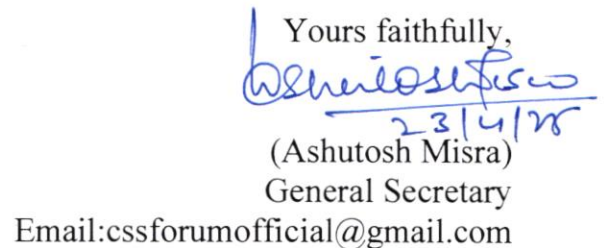 Yours faithfully,
Ashutosh Misra
23/4/25
(Ashutosh Misra)
General Secretary
Email:cssforumofficial@gmail.com